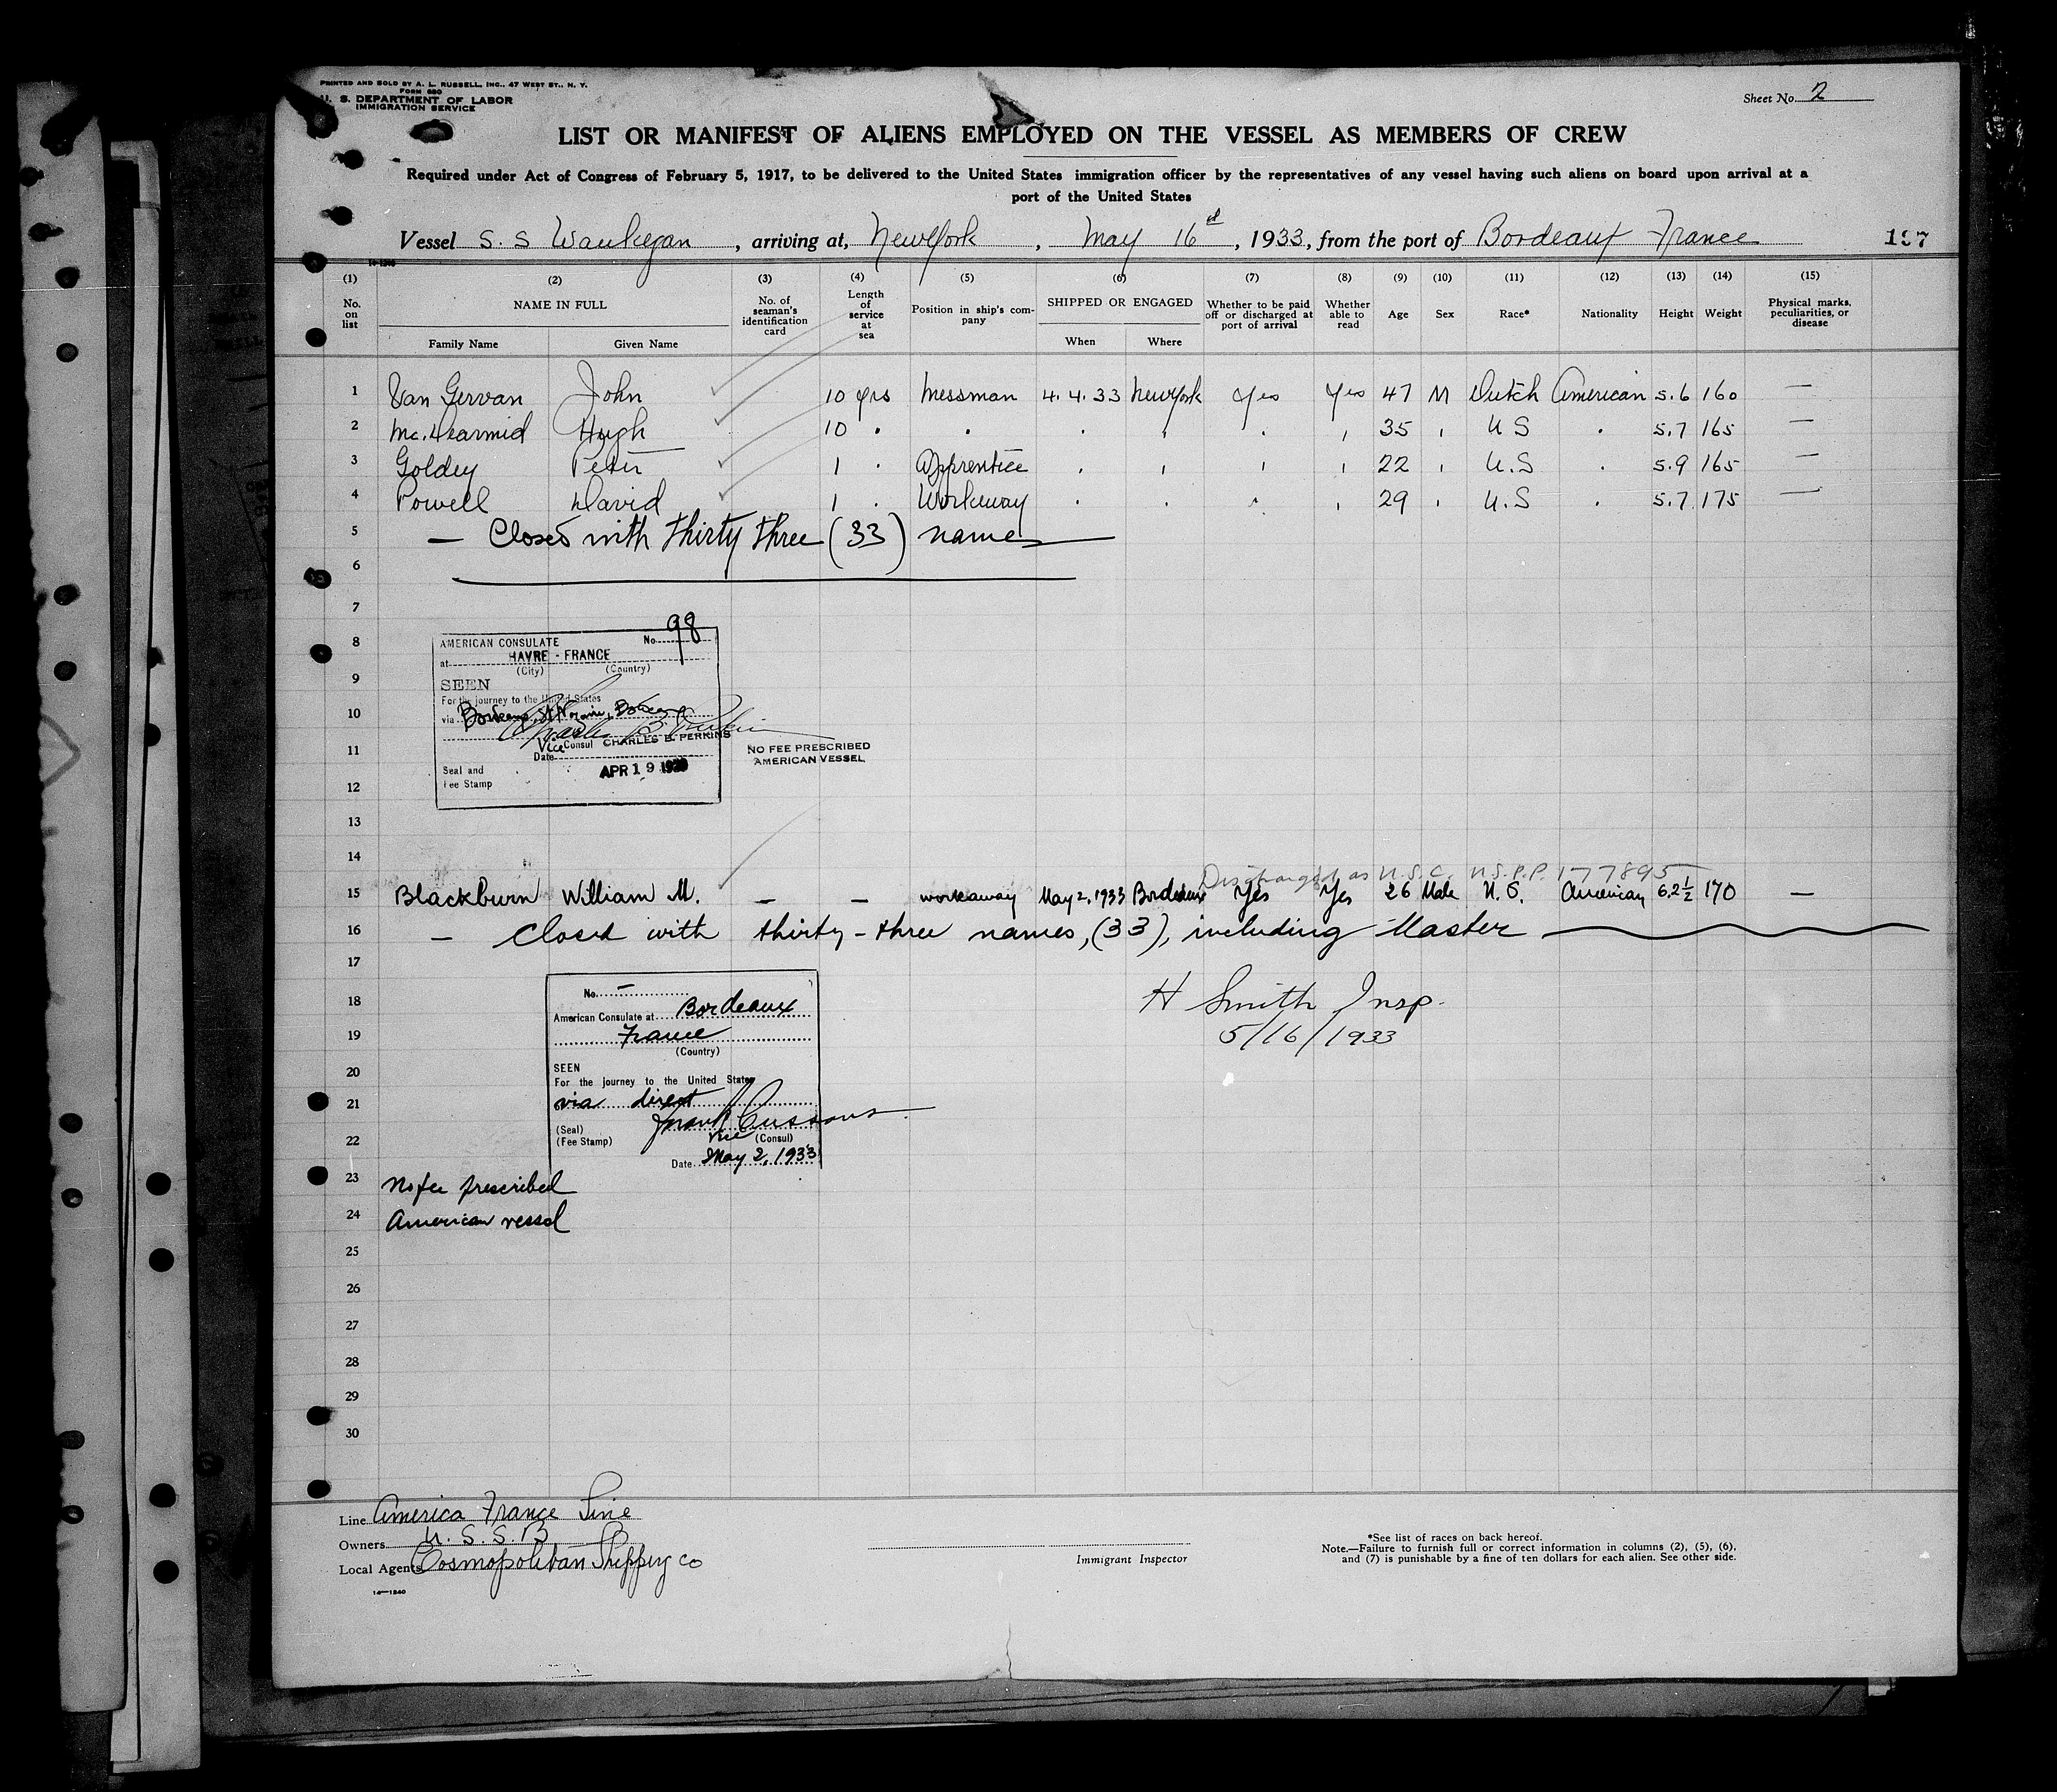 PRINTED AND SOLD BY A. L. RUSSELL, INC., 47 WEST ST., N. Y.
FORM 680
U. S. DEPARTMENT OF LABOR
IMMIGRATION SERVICE
Sheet No. 2
LIST OR MANIFEST OF ALIENS EMPLOYED ON THE VESSEL AS MEMBERS OF CREW
Required under Act of Congress of February 5, 1917, to be delivered to the United States immigration officer by the representatives of any vessel having such aliens on board upon arrival at a
port of the United States
Vessel S. S Waukegan, arriving at, New York, May 16, 1933, from the port of Bordeaux France
(1) (2) (3) (4) (5) (6) (7) (8) (9) (10) (11) (12) (13) (14) (15)
No. on list NAME IN FULL Family Name Given Name No. of seaman's identification card Length of service at sea Position in ship's company SHIPPED OR ENGAGED When Where Whether to be paid off or discharged at port of arrival Whether able to read Age Sex Race* Nationality Height Weight Physical marks, peculiarities, or disease
1 Van Gervan John 10 yrs Messman 4.4.33 New York Yes Yes 47 M Dutch American 5.6 160 —
2 Mc.Dearmid Hugh 10 " " " " " " 35 " U S " 5.7 165 —
3 Goldey Peter 1 " Apprentice " " " " 22 " U.S " 5.9 165 —
4 Powell David 1 " Workaway " " " " 29 " U.S " 5.7 175 —
5 — Closed with thirty three (33) names
6
7
8
9
10
11
12
13
14
AMERICAN CONSULATE No. 98
at HAVRE - FRANCE
(City) (Country)
SEEN
For the journey to the United States
via
Vice Consul CHARLES B. PERKINS
Date APR 19
Seal and
Fee Stamp
NO FEE PRESCRIBED
AMERICAN VESSEL
Discharged as U.S.C. U.S.P.P. 177895
15 Blackburn William M. — — workaway May 2, 1933 Bordeaux Yes Yes 26 Male U.S. American 6.2½ 170 —
16 — Closed with thirty-three names, (33), including Master
17
18
19
20
21
22
No. —
American Consulate at Bordeaux
France
(Country)
SEEN
For the journey to the United States
via direct
(Seal)
(Fee Stamp)
Frank Cussans
Vice (Consul)
Date May 2, 1933
H Smith Insp.
5/16/1933
23 No fee prescribed
24 American vessel
25
26
27
28
29
30
Line America France Line
Owners U. S. S. B
Local Agents Cosmopolitan Shipping Co
14—1240
Immigrant Inspector
*See list of races on back hereof.
Note.—Failure to furnish full or correct information in columns (2), (5), (6),
and (7) is punishable by a fine of ten dollars for each alien. See other side.